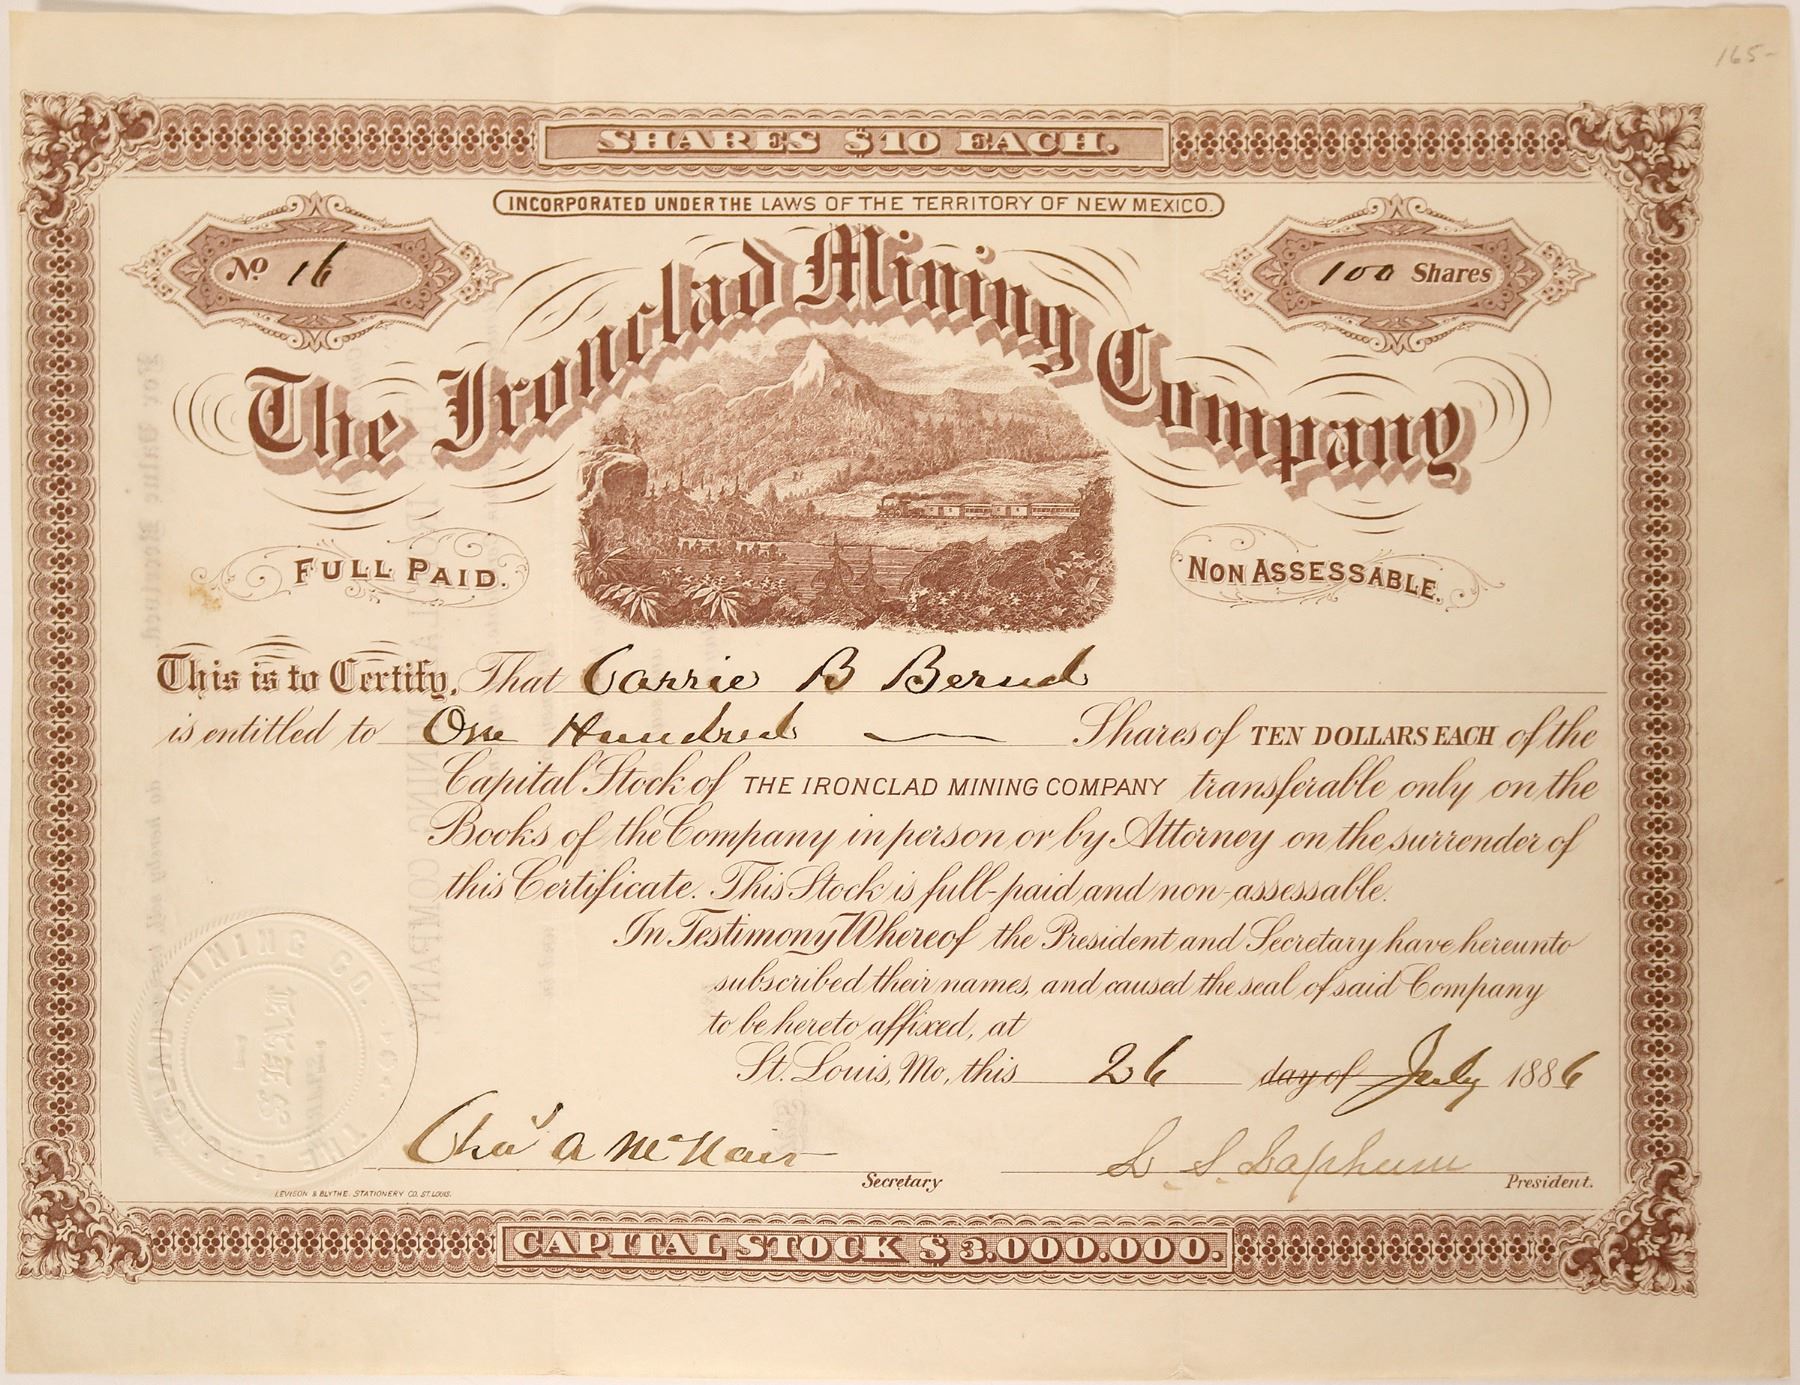 165-
SHARES $10 EACH.
INCORPORATED UNDER THE LAWS OF THE TERRITORY OF NEW MEXICO.
No. 16
100 Shares
The Ironclad Mining Company
FULL PAID.
NON ASSESSABLE.
This is to Certify, That Carrie B Bernd
is entitled to One Hundred — Shares of TEN DOLLARS EACH of the
Capital Stock of THE IRONCLAD MINING COMPANY transferable only on the
Books of the Company in person or by Attorney on the surrender of
this Certificate. This Stock is full-paid and non-assessable.
In Testimony Whereof the President and Secretary have hereunto
subscribed their names, and caused the seal of said Company
to be hereto affixed, at
St. Louis, Mo, this 26 day of July 1886
THE IRONCLAD MINING CO.
SEAL
Chas A McNair Secretary
L. S. Lapham President.
LEVISON & BLYTHE STATIONERY CO. ST. LOUIS.
CAPITAL STOCK $3.000.000.